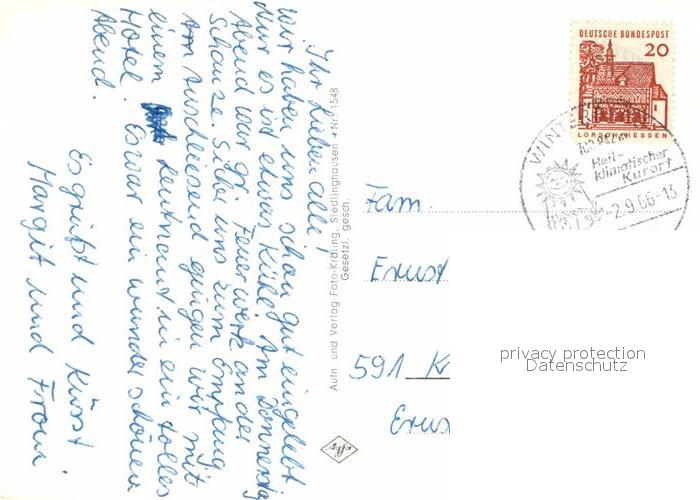 Ihr Lieben alle!
Wir haben uns schon gut eingelebt
nur es ist etwas Kühl. Am Donnerstag
Abend war gr. Feuerwerk an der
Schanze. Sille uns zum Empfang
Am Anschliesend gingen wir mit
einem Leutnant in ein tolles
Hotel. Es war ein wunderschönen
Abend.
Es grüßt und Küsst
Margit und Froni.
Aufn. und Verlag Foto-Kräling, Siedlinghausen • Nr. 1548
Gesetzl. gesch.
Agfa
DEUTSCHE BUNDESPOST
20
LORSCH/HESSEN
WINTERBERG
Heil-
klimatischer
Kurort
-2.9.66-13
Fam.
Ernst
591 K
Erns
privacy protection
Datenschutz